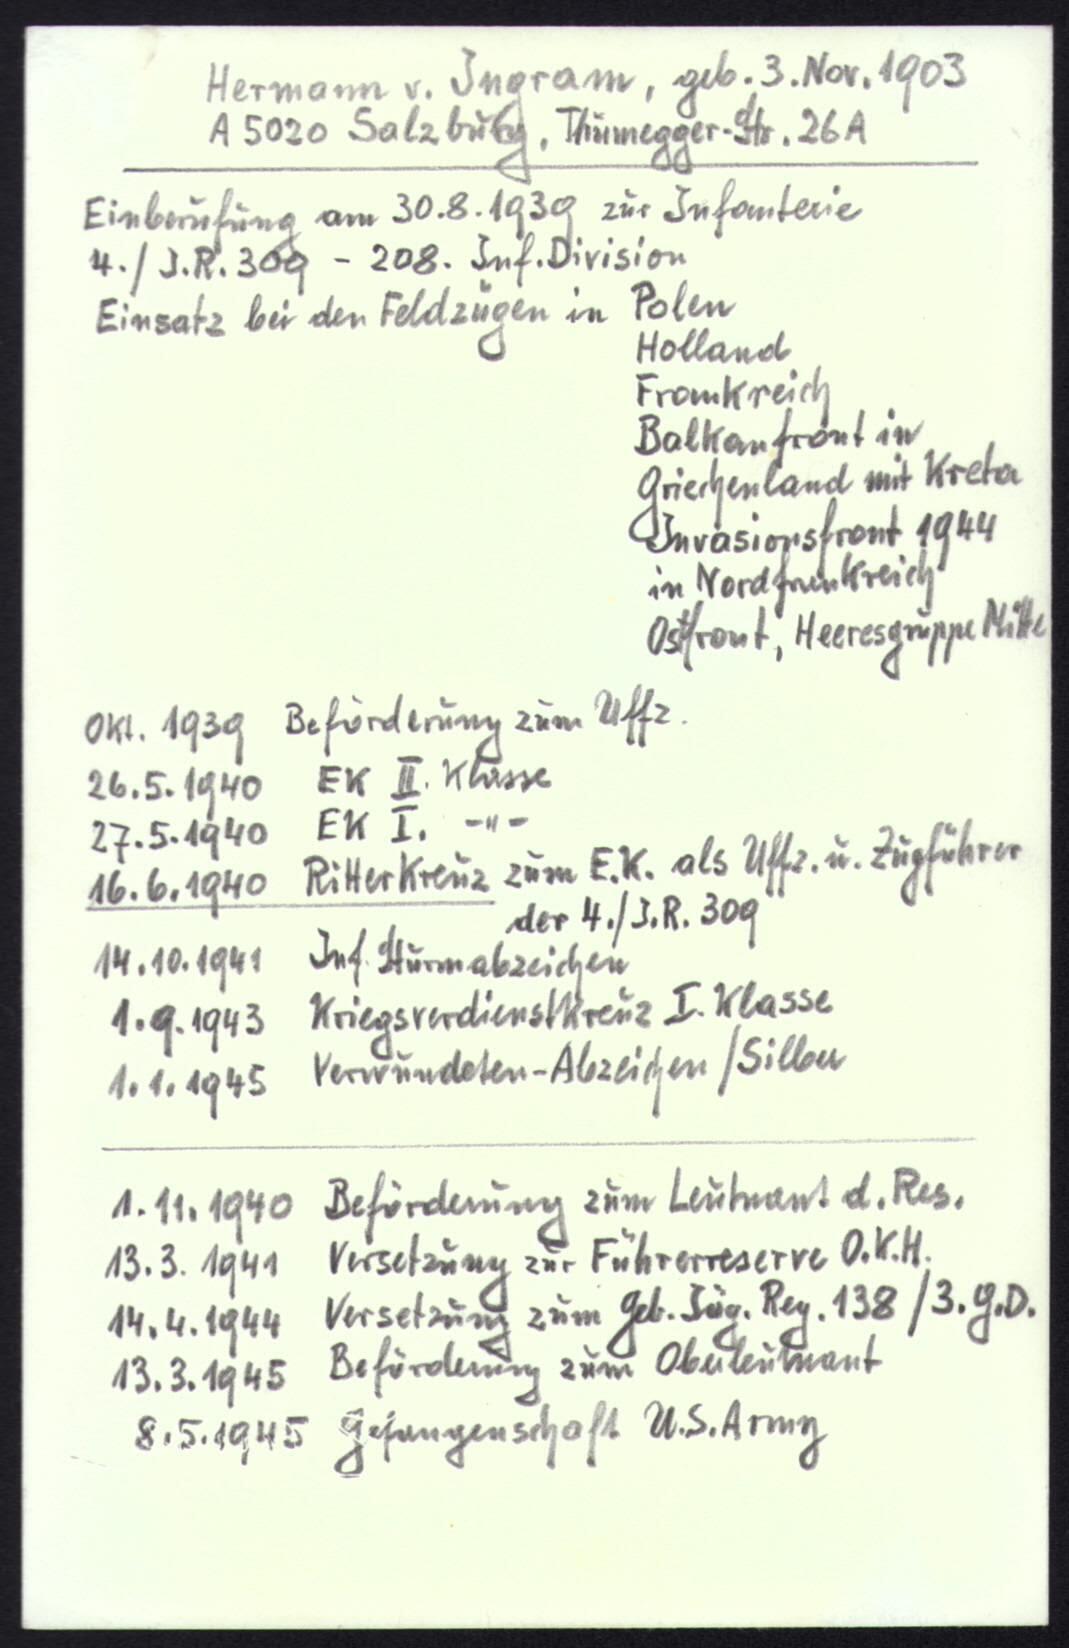 Hermann v. Ingram, geb. 3. Nov. 1903
A 5020 Salzburg, Thumegger-Str. 26A
Einberufung am 30.8.1939 zur Infanterie
4./J.R. 309 - 208. Inf. Division
Einsatz bei den Feldzügen in Polen
Holland
Frankreich
Balkanfront in
Griechenland mit Kreta
Invasionsfront 1944
in Nordfrankreich
Ostfront, Heeresgruppe Mitte
Okt. 1939 Beförderung zum Uffz.
26.5.1940 EK II. Klasse
27.5.1940 EK I. -"-
16.6.1940 Ritterkreuz zum E.K. als Uffz. u. Zugführer
der 4./J.R. 309
14.10.1941 Inf. Sturmabzeichen
1.9.1943 Kriegsverdienstkreuz I. Klasse
1.1.1945 Verwundeten-Abzeichen/Silber
1.11.1940 Beförderung zum Leutnant d. Res.
13.3.1941 Versetzung zur Führerreserve O.K.H.
14.4.1944 Versetzung zum Geb. Jäg. Reg. 138/3. G.D.
13.3.1945 Beförderung zum Oberleutnant
8.5.1945 Gefangenschaft U.S. Army